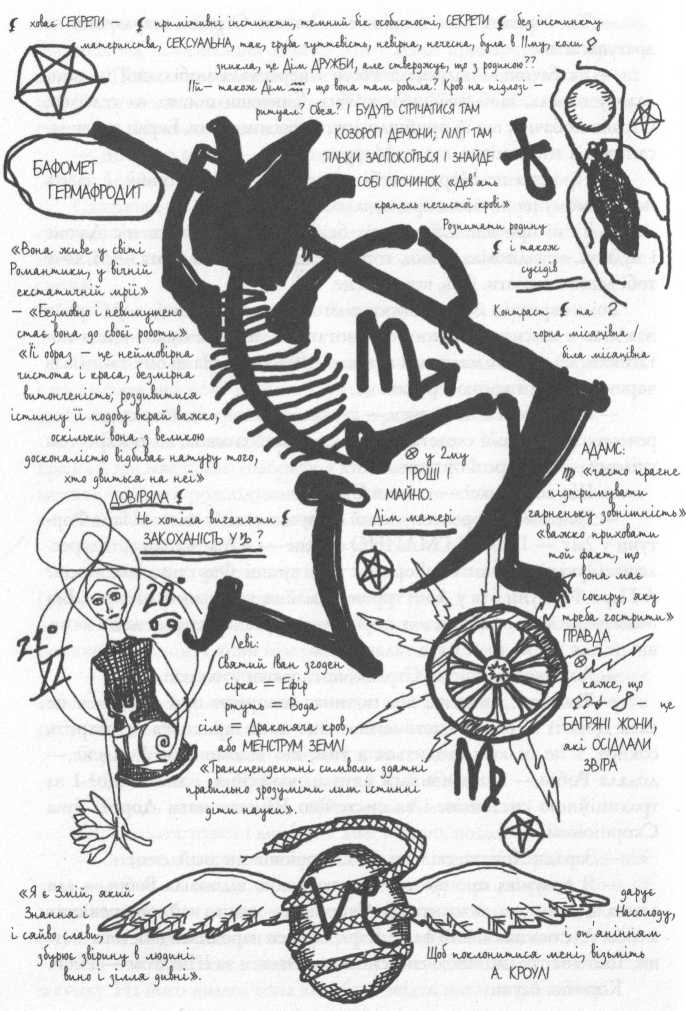 ховає СЕКРЕТИ — примітивні інстинкти, темний бік особистості, СЕКРЕТИ без інстинкту
материнства, СЕКСУАЛЬНА, так, груба чуттєвість, невірна, нечесна, була в 11му, коли
зникла, це Дім ДРУЖБИ, але стверджує, що з родиною??
11й — також Дім ♒, що вона там робила? Кров на підлозі —
ритуал? Обеа? І БУДУТЬ СТРИЧАТИСЯ ТАМ
КОЗОРОГІ ДЕМОНИ; ЛІЛІТ ТАМ
ТІЛЬКИ ЗАСПОКОЇТЬСЯ І ЗНАЙДЕ
СОБІ СПОЧИНОК «Дев'ять
крапель нечистої крові»
БАФОМЕТ
ГЕРМАФРОДИТ
Розпитати родину
і також
сусідів
«Вона живе у світі
Романтики, у вічній
екстатичній мрії»
— «Безмовно і невимушено
стає вона до своєї роботи»
«Її образ — це неймовірна
чистота і краса, безмірна
витонченість; роздивитися
істинну її подобу вкрай важко,
оскільки вона з великою
досконалістю відбиває натуру того,
хто дивиться на неї»
ДОВІРЯЛА
Не хотіла виганяти
ЗАКОХАНІСТЬ У ♑ ?
Контраст та ?
чорна місячівна /
біла місячівна
♏
⊗ у 2му
ГРОШІ І
МАЙНО.
Дім матері
АДАМС:
♍ «часто прагне
підтримувати
гарненьку зовнішність»
«важко приховати
той факт, що
вона має
сокиру, яку
треба гострити»
ПРАВДА
⊗
каже, що
— це
БАГРЯНІ ЖОНИ,
які ОСІДЛАЛИ
ЗВІРА
20°
♋
21°
♊
Леві:
Святий Іван згоден
сірка = Ефір
ртуть = Вода
сіль = Драконяча кров,
або МЕНСТРУМ ЗЕМЛІ
«Трансцендентні символи здатні
правильно зрозуміти лиш істинні
діти науки».
♍
«Я є Змій, який
Знання
і сяйво слави,
збурює звірину в людині.
вино і зілля дивні».
дарує
Насолоду,
і оп'янінням
Щоб поклонитися мені, візьміть
А. КРОУЛІ